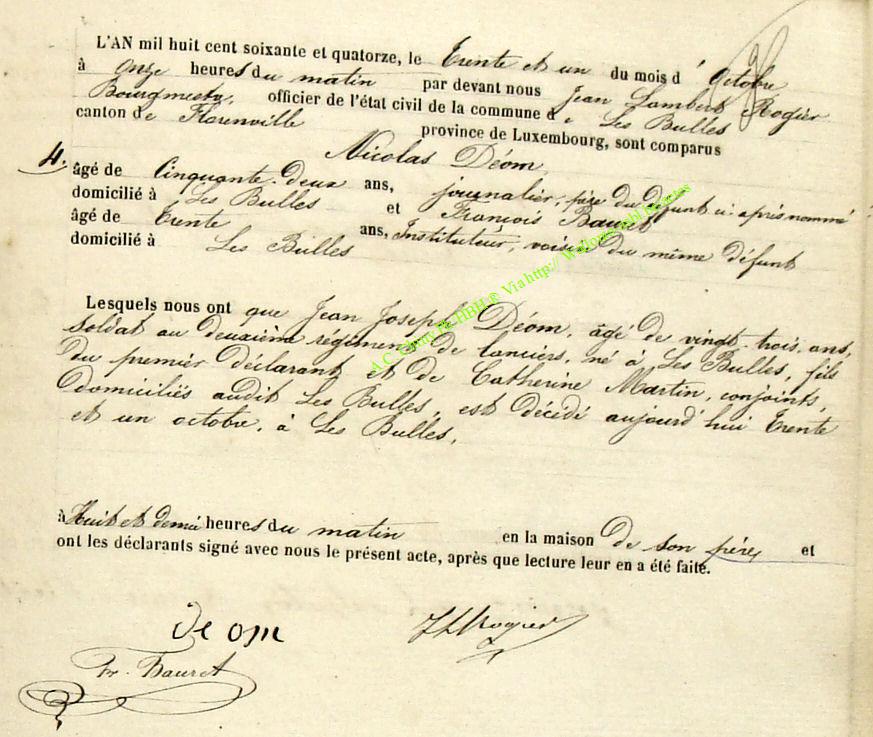 L'AN mil huit cent soixante et quatorze, le Trente et un du mois d' Octobre
à Onze heures du matin par devant nous Jean Lambert Rogier
Bourgmestre, officier de l'état civil de la commune de Les Bulles
canton de Florenville province de Luxembourg, sont comparus
4. Nicolas Déom,
âgé de Cinquante-deux ans, journalier, père du défunt ci après nommé
domicilié à Les Bulles et François Bauret
âgé de trente ans, Instituteur, voisin du même défunt
domicilié à Les Bulles
Lesquels nous ont que Jean Joseph Déom, âgé de vingt-trois ans,
soldat au deuxième régiment de lanciers, né à Les Bulles, fils
du premier déclarant et de Catherine Martin, conjoints,
domiciliés audit Les Bulles, est décédé aujourd'hui trente
et un octobre, à Les Bulles,
à Huit et demie heures du matin en la maison de son père, et
ont les déclarants signé avec nous le présent acte, après que lecture leur en a été faite.
De om JLRogier
Fr. Bauret